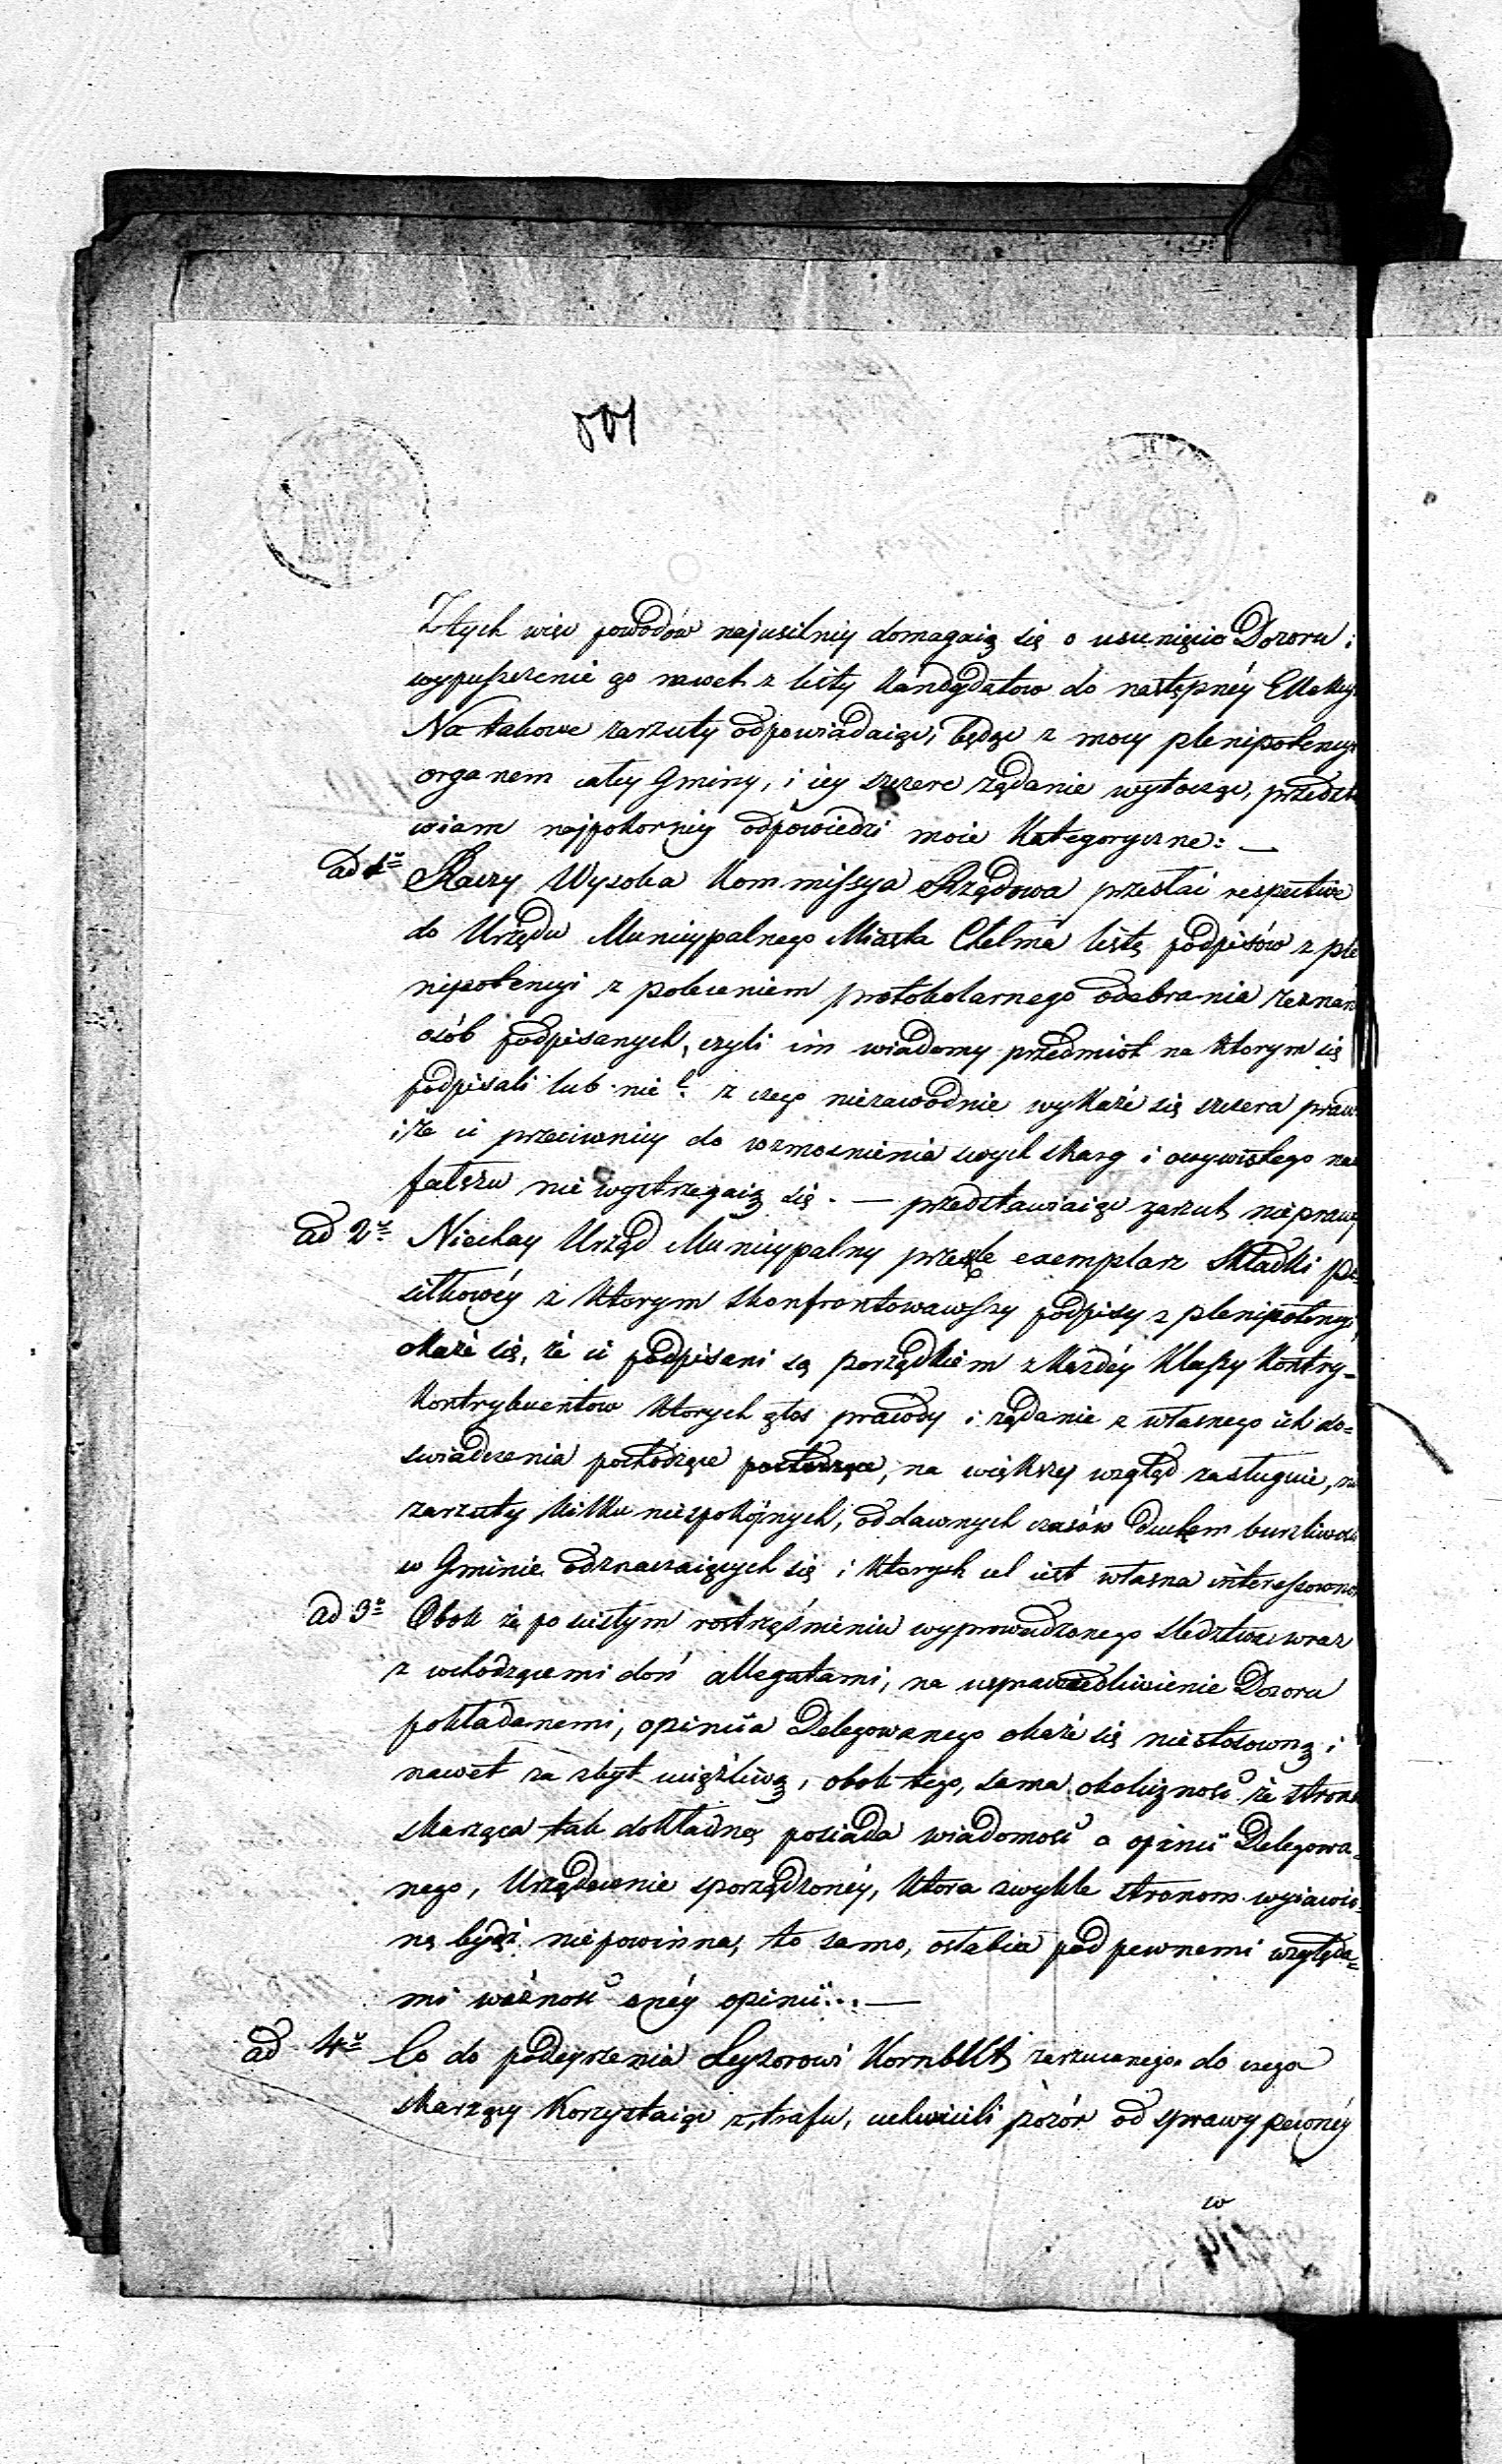 501
Z tych więc powodów najusilniy domagaią się o usunięcie Dozoru i
wypuszczenie go nawet z listy Kandydatow do następnéy Elekcyi
Na takowe zarzuty odpowiadaiąc, będąc z mocy plenipotencyi
organem całey Gminy, i iey szczere żądanie wytocząc, przedsta
wiam najpokorniy odpowiedzi moie Kategoryczne: —
ad 1o Raczy Wysoka Kommissya Rządowa przesłać respective
do Urzędu Municypalnego Miasta Chełma listę podpisów z ple
nipotencyi z poleceniem protokolarnego odebrania zeznań
osób podpisanych, czyli im wiadomy przedmiot na ktorym się
podpisali lub nie?. z czego niezawodnie wykaże się szczera praw
iże ci przeciwnicy do wzmocnienia swych skarg i oczywistego na
fałszu nie wystrzegaią się. — przedstawiaiąc zarzut nieprawy
ad 2o Niechay Urząd Municypalny prześle exemplarz Składki po
siłkowéy z ktorym skonfrontowawszy podpisy z plenipotencyi,
okaże się, że ci podpisani są porządkiem z każdéy Klassy Kontry-
Kontrybuentow ktorych głos prawdy i żądanie z własnego ich do=
swiadczenia pochodzące, na większy wzgląd zasługuie, ni
zarzuty kilku niespokóynych, od dawnych czasów duchem burzliwości
w Gminie odznaczaiących się i ktorych cel iest własna interessowność
ad 3o Obok że po scisłym rostrząśnieniu wyprowadzonego sledztwa wraz
z wchodzącemi doń allegatami, na usprawiedliwienie Dozoru
pokładanemi, opiniia Delegowanego okaże się niestosowną i
nawet za zbyt uciążliwą, obok tego, sama okoliczność że strona
skarząca tak dokładną posiada wiadomość o opinii Delegowa=
nego, Urzędownie sporządzonéy, ktora zwykle stronom wyiawio=
ną bydź niepowinna, to samo, osłabia pod pewnemi względa=
mi ważność onéy opinii... —
ad 4o Co do podeyrzenia Leyzorowi Kornblit zarzucanego do czego
skarzący korzystaiąc z trafu, uchwicili pozór od sprawy pewnéy
w